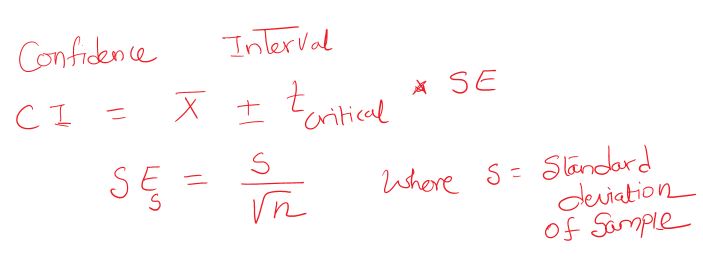 Confidence Interval
CI = X̅ ± t critical * SE
SE_S = S / √n where S = Standard
deviation
of Sample